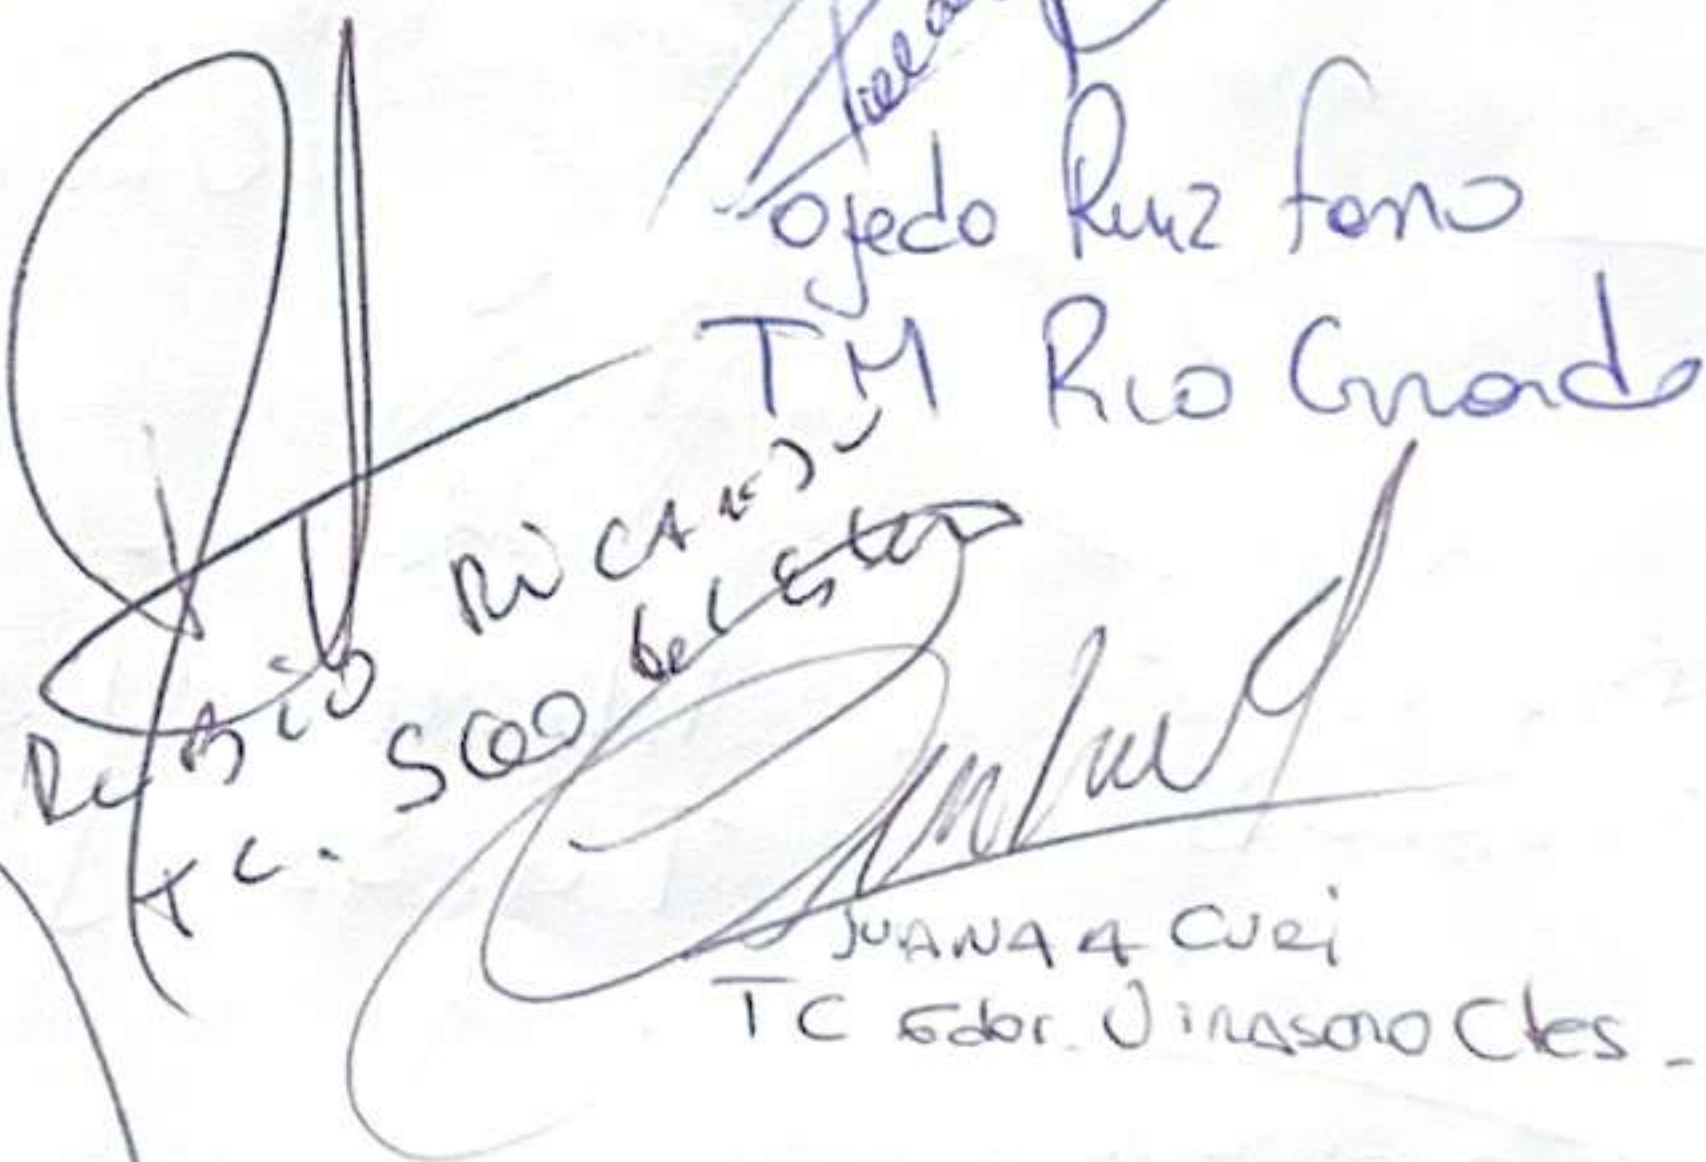 Ojeda Ruiz
TM Rio Grande
Rubio Ricardo
TC. SGO del Estero
JUANA A CURI
TC Gdor. Virasoro Ctes -